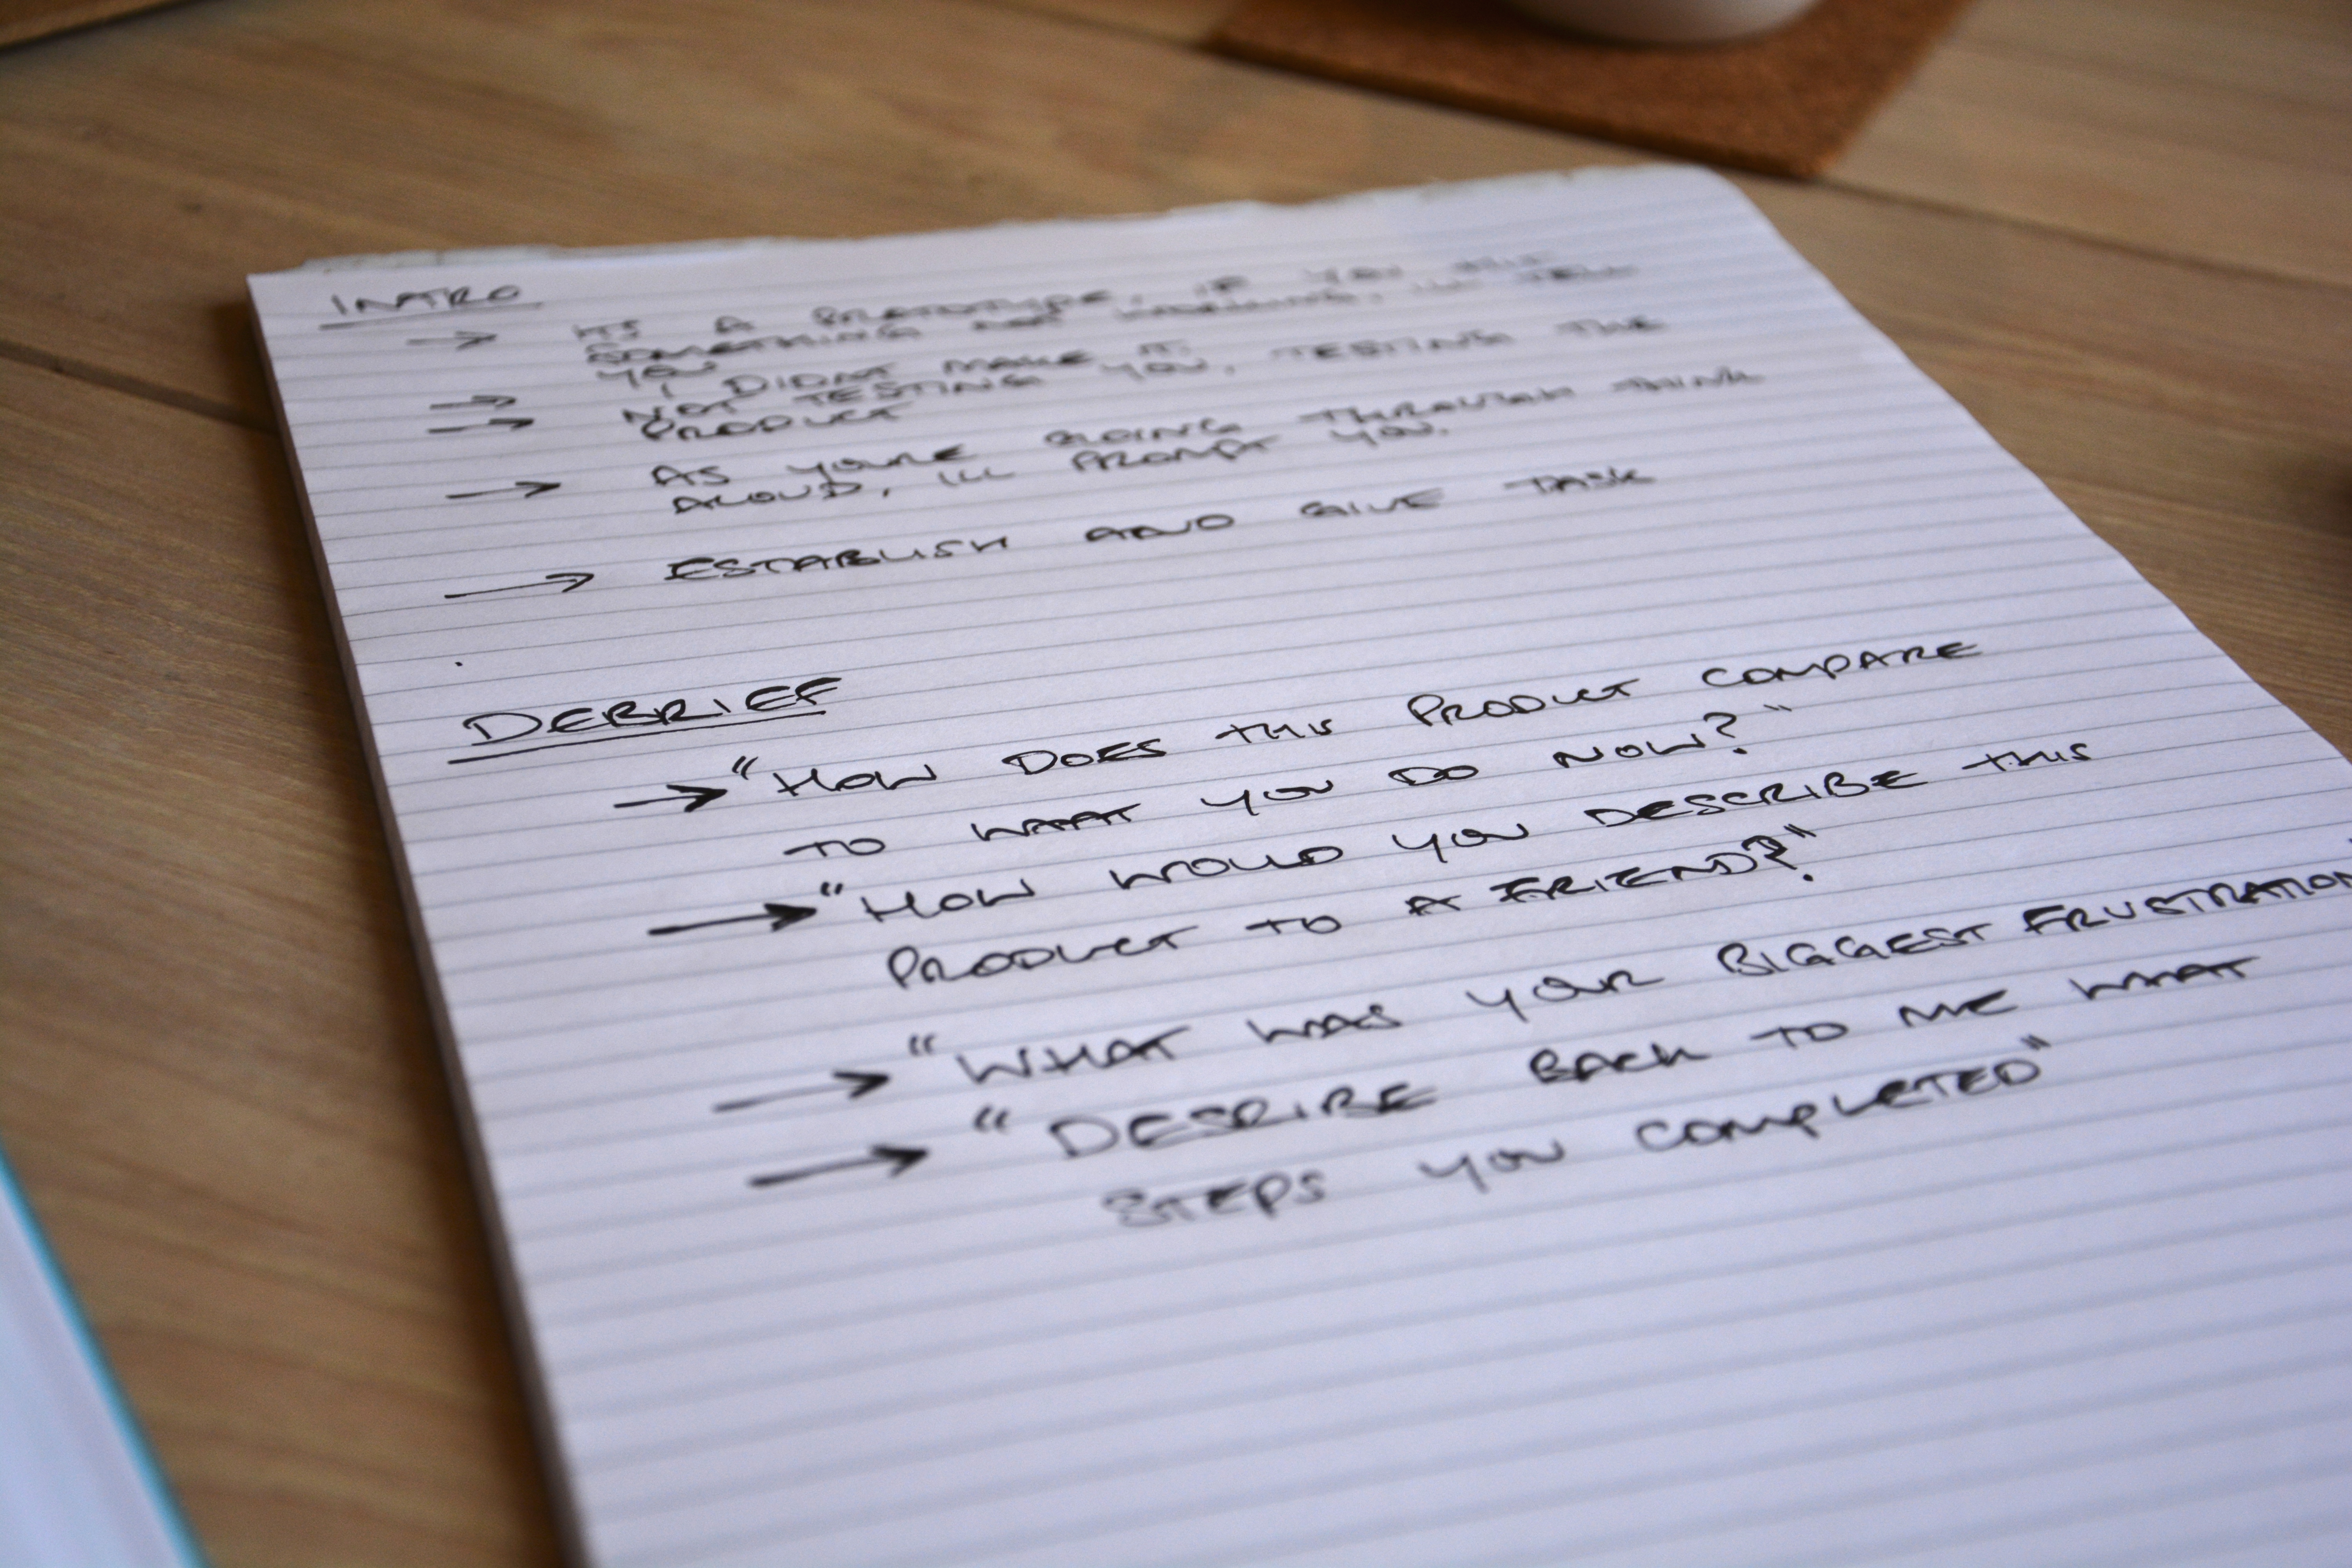 INTRO
→ ITS A PROTOTYPE, IF YOU
SOMETHING NOT WORKING, ILL TELL
YOU
→ I DIDNT MAKE IT.
→ NOT TESTING YOU, TESTING THE
PRODUCT
→ AS YOURE GOING THROUGH THINK
ALOUD, ILL PROMPT YOU.
→ ESTABLISH AND GIVE TASK
DEBRIEF
→ "HOW DOES THIS PRODUCT COMPARE
TO WHAT YOU DO NOW?"
→ "HOW WOULD YOU DESCRIBE THIS
PRODUCT TO A FRIEND?"
→ "WHAT WAS YOUR BIGGEST FRUSTRATION
→ "DESCRIBE BACK TO ME WHAT
STEPS YOU COMPLETED"